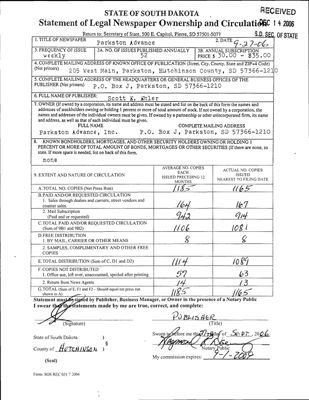 RECEIVED
DEC 14 2006
S.D. SEC. OF STATE
STATE OF SOUTH DAKOTA
Statement of Legal Newspaper Ownership and Circulation
Return to: Secretary of State, 500 E. Capitol, Pierre, SD 57501-5077
1. TITLE OF NEWSPAPER
Parkston Advance
2. DATE
9-27-06
3. FREQUENCY OF ISSUE
weekly
3A. NO. OF ISSUES PUBLISHED ANNUALLY
52
3B. ANNUAL SUBSCRIPTION
PRICE $ 30.00 - $35.00
4. COMPLETE MAILING ADDRESS OF KNOWN OFFICE OF PUBLICATION (Street, City, County, State and ZIP+4 Code)
(Not printers)
205 West Main, Parkston, Hutchinson County, SD 57366-1210
5. COMPLETE MAILING ADDRESS OF THE HEADQUARTERS OR GENERAL BUSINESS OFFICES OF THE
PUBLISHER (Not printer)
P.O. Box J, Parkston, SD 57366-1210
6. FULL NAME OF PUBLISHER:
Scott E. Ehler
7. OWNER (If owned by a corporation, its name and address must be stated and also on the back of this form the names and
addresses of stockholders owning or holding 1 percent or more of total amount of stock. If not owned by a corporation, the
names and addresses of the individual owners must be given. If owned by a partnership or other unincorporated firm, its name
and address, as well as that of each individual must be given.
FULL NAME
COMPLETE MAILING ADDRESS
Parkston Advance, Inc.
P.O. Box J, Parkston, SD 57366-1210
8. KNOWN BONDHOLDERS, MORTGAGES, AND OTHER SECURITY HOLDERS OWNING OR HOLDING 1
PERCENT OR MORE OF TOTAL AMOUNT OF BONDS, MORTGAGES OR OTHER SECURITIES (If there are none, so
state. If more space is needed, list on back of this form.
none
9. EXTENT AND NATURE OF CIRCULATION
AVERAGE NO. COPIES
EACH
ISSUED PRECEDING 12
MONTHS
ACTUAL NO. COPIES
ISSUED
NEAREST TO FILING DATE
A. TOTAL NO. COPIES (Net Press Run)
1185
1165
B. PAID AND/OR REQUESTED CIRCULATION
1. Sales through dealers and carriers, street vendors and
counter sales.
164
167
2. Mail Subscription
(Paid and or requested)
942
914
C. TOTAL PAID AND/OR REQUESTED CIRCULATION
(Sum of 9B1 and 9B2)
1106
1081
D. FREE DISTRIBUTION
1. BY MAIL, CARRIER OR OTHER MEANS
8
8
2. SAMPLES, COMPLIMENTARY AND OTHER FREE
COPIES
E. TOTAL DISTRIBUTION (Sum of C, D1 and D2)
1114
1089
F. COPIES NOT DISTRIBUTED
1. Office use, left over, unaccounted, spoiled after printing
57
63
2. Return from News Agents
14
13
G. TOTAL (Sum of E, F1 and F2 - Should equal net press run
shown in A)
1185
1165
Statement must be signed by Publisher, Business Manager, or Owner in the presence of a Notary Public
I swear that the statements made by me are true, correct, and complete:
PUBLISHER
(Signature)
(Title)
State of South Dakota )
§
County of HUTCHINSON )
(Seal)
Sworn to before me this
day of Sept. 2006
Notary Public
My commission expires:
Form: SOS REC 051 7/2004